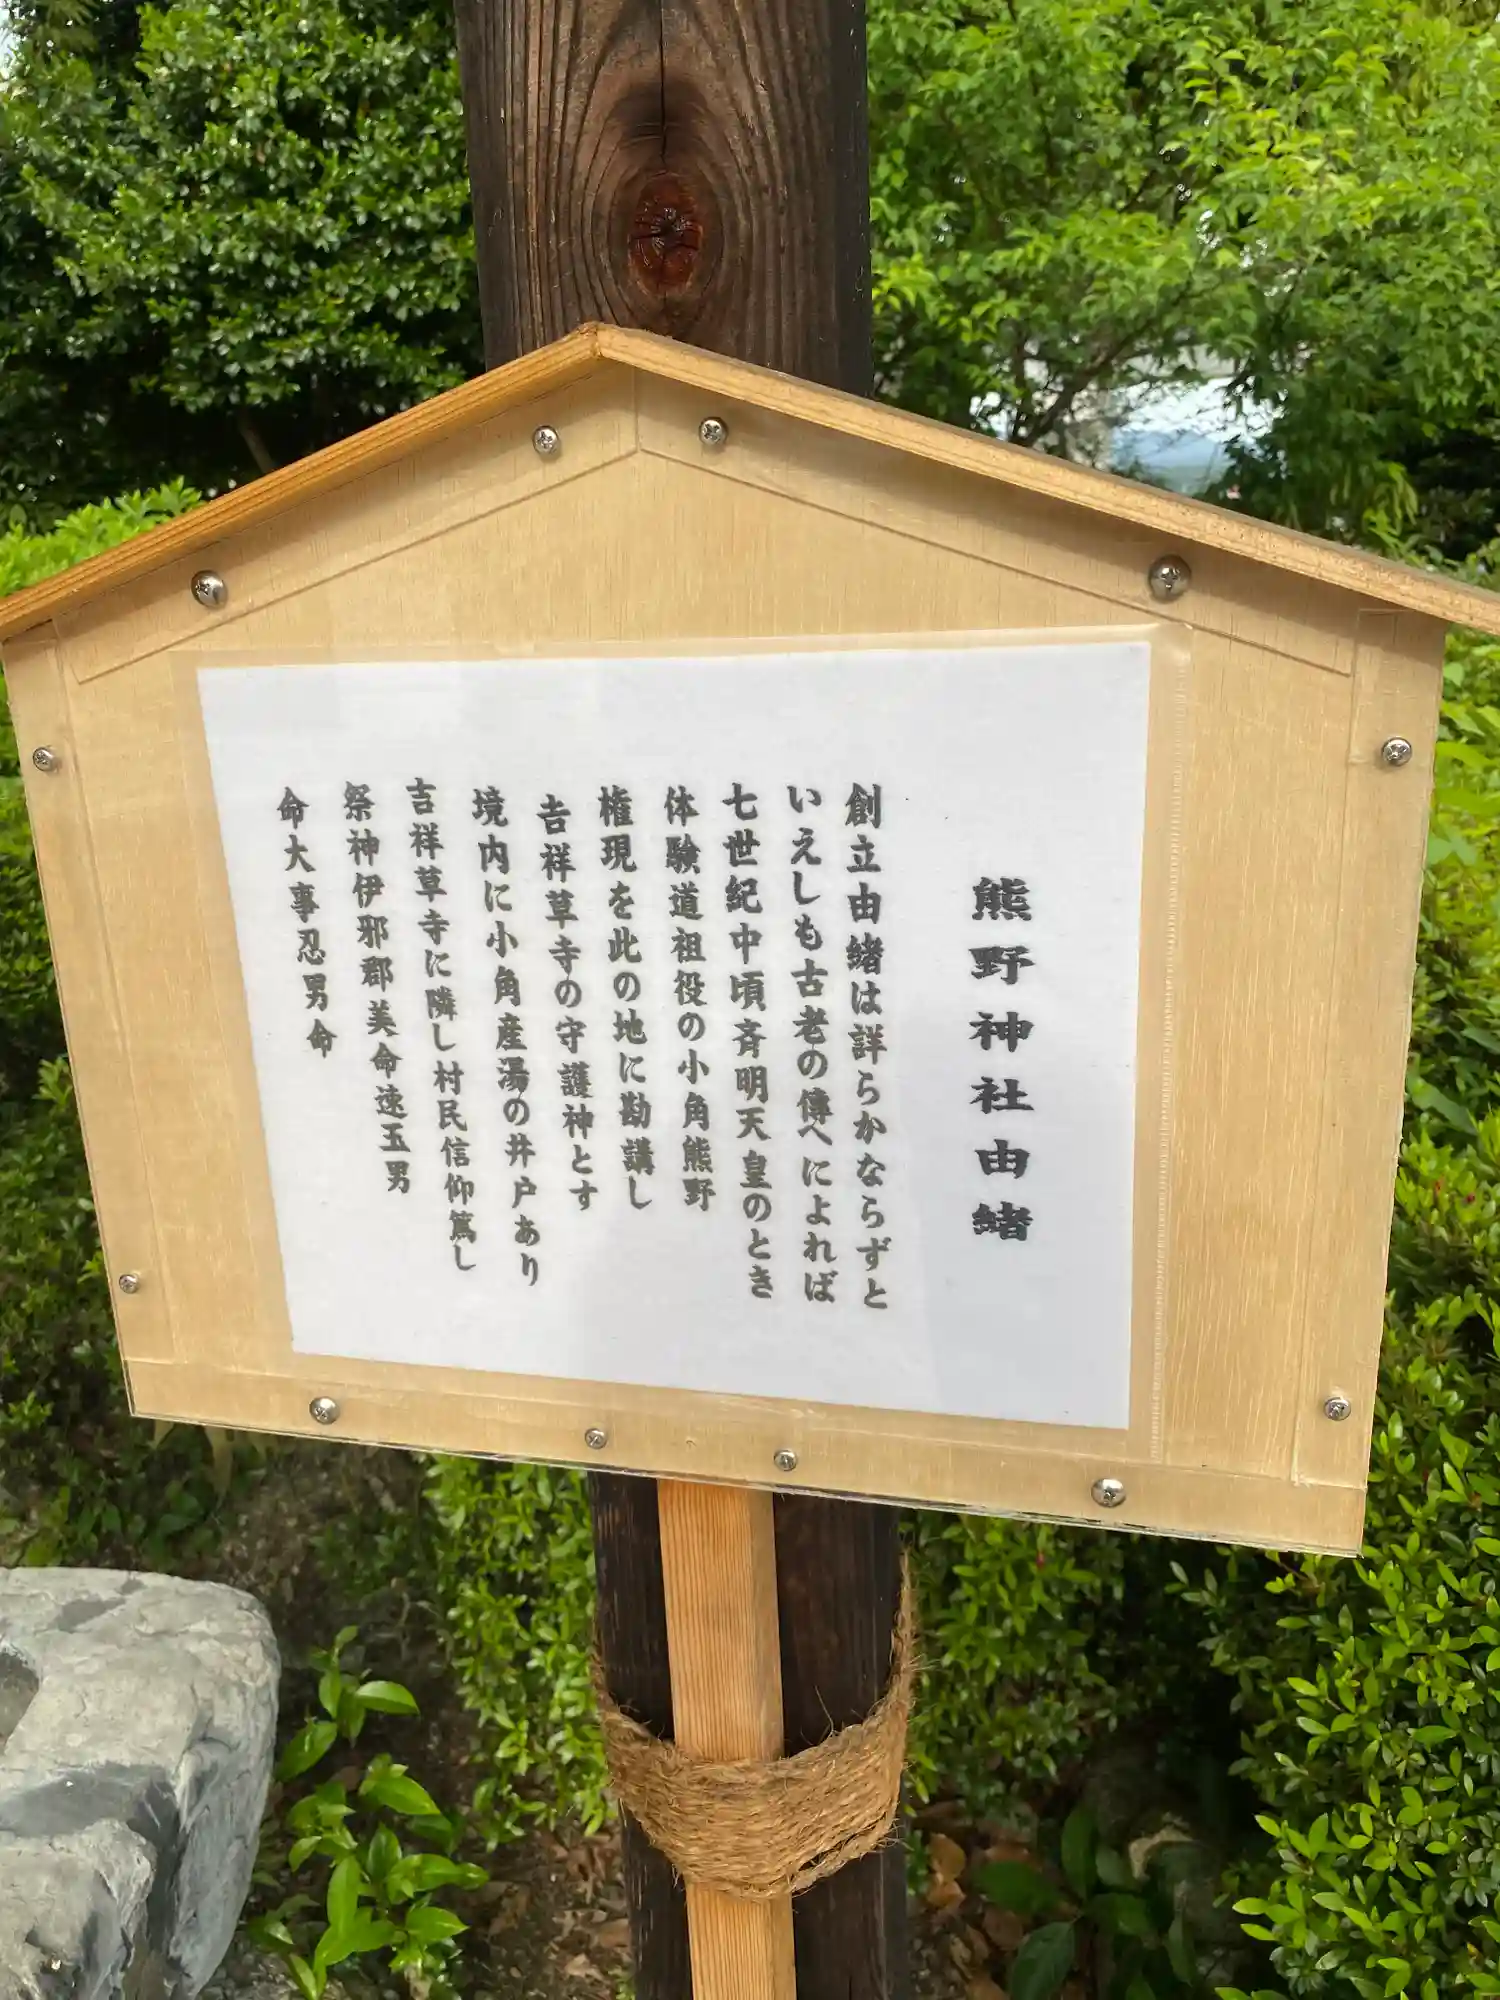 熊野神社由緒
創立由緒は詳らかならずと
いえしも古老の傳へによれば
七世紀中頃斉明天皇のとき
体験道祖役の小角熊野
権現を此の地に勘講し
吉祥草寺の守護神とす
境内に小角産湯の井戸あり
吉祥草寺に隣し村民信仰篤し
祭神伊邪郡美命速玉男
命大事忍男命